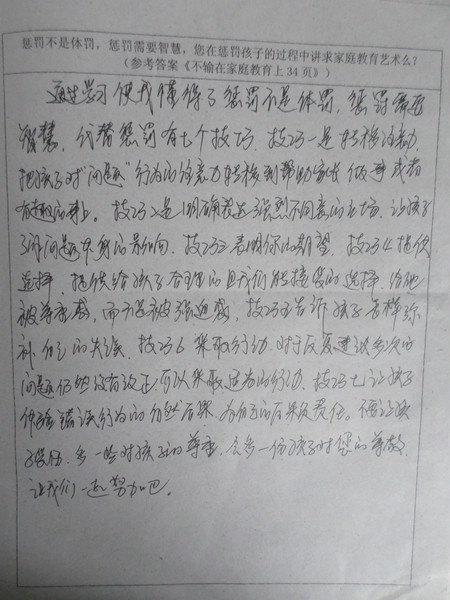 惩罚不是体罚，惩罚需要智慧，您在惩罚孩子的过程中讲求家庭教育艺术么？
（参考答案《不输在家庭教育上34页》）
通过学习使我懂得了惩罚不是体罚，惩罚需要
智慧，代替惩罚有七个技巧，技巧一是转移注意力，
把孩子对“问题”行为的注意力转移到帮助家长做事或者
有趣的事上。技巧2是明确表达强烈不同意的立场，让孩子
了解问题本身的影响，技巧3表明你的期望，技巧4提供
选择，提供给孩子合理的且我们能接受的选择，给他
被尊重感，而不是被强迫感，技巧5告诉孩子怎样弥
补自己的失误，技巧6采取行动，对于反复建议多次的
问题仍然没有改正可以采取适当的行动，技巧七让孩子
体验错误行为的自然后果，为自己的后果负责任。不要让孩
子受伤，多一些对孩子的尊重，会多一份孩子对您的尊敬，
让我们一起努力吧。